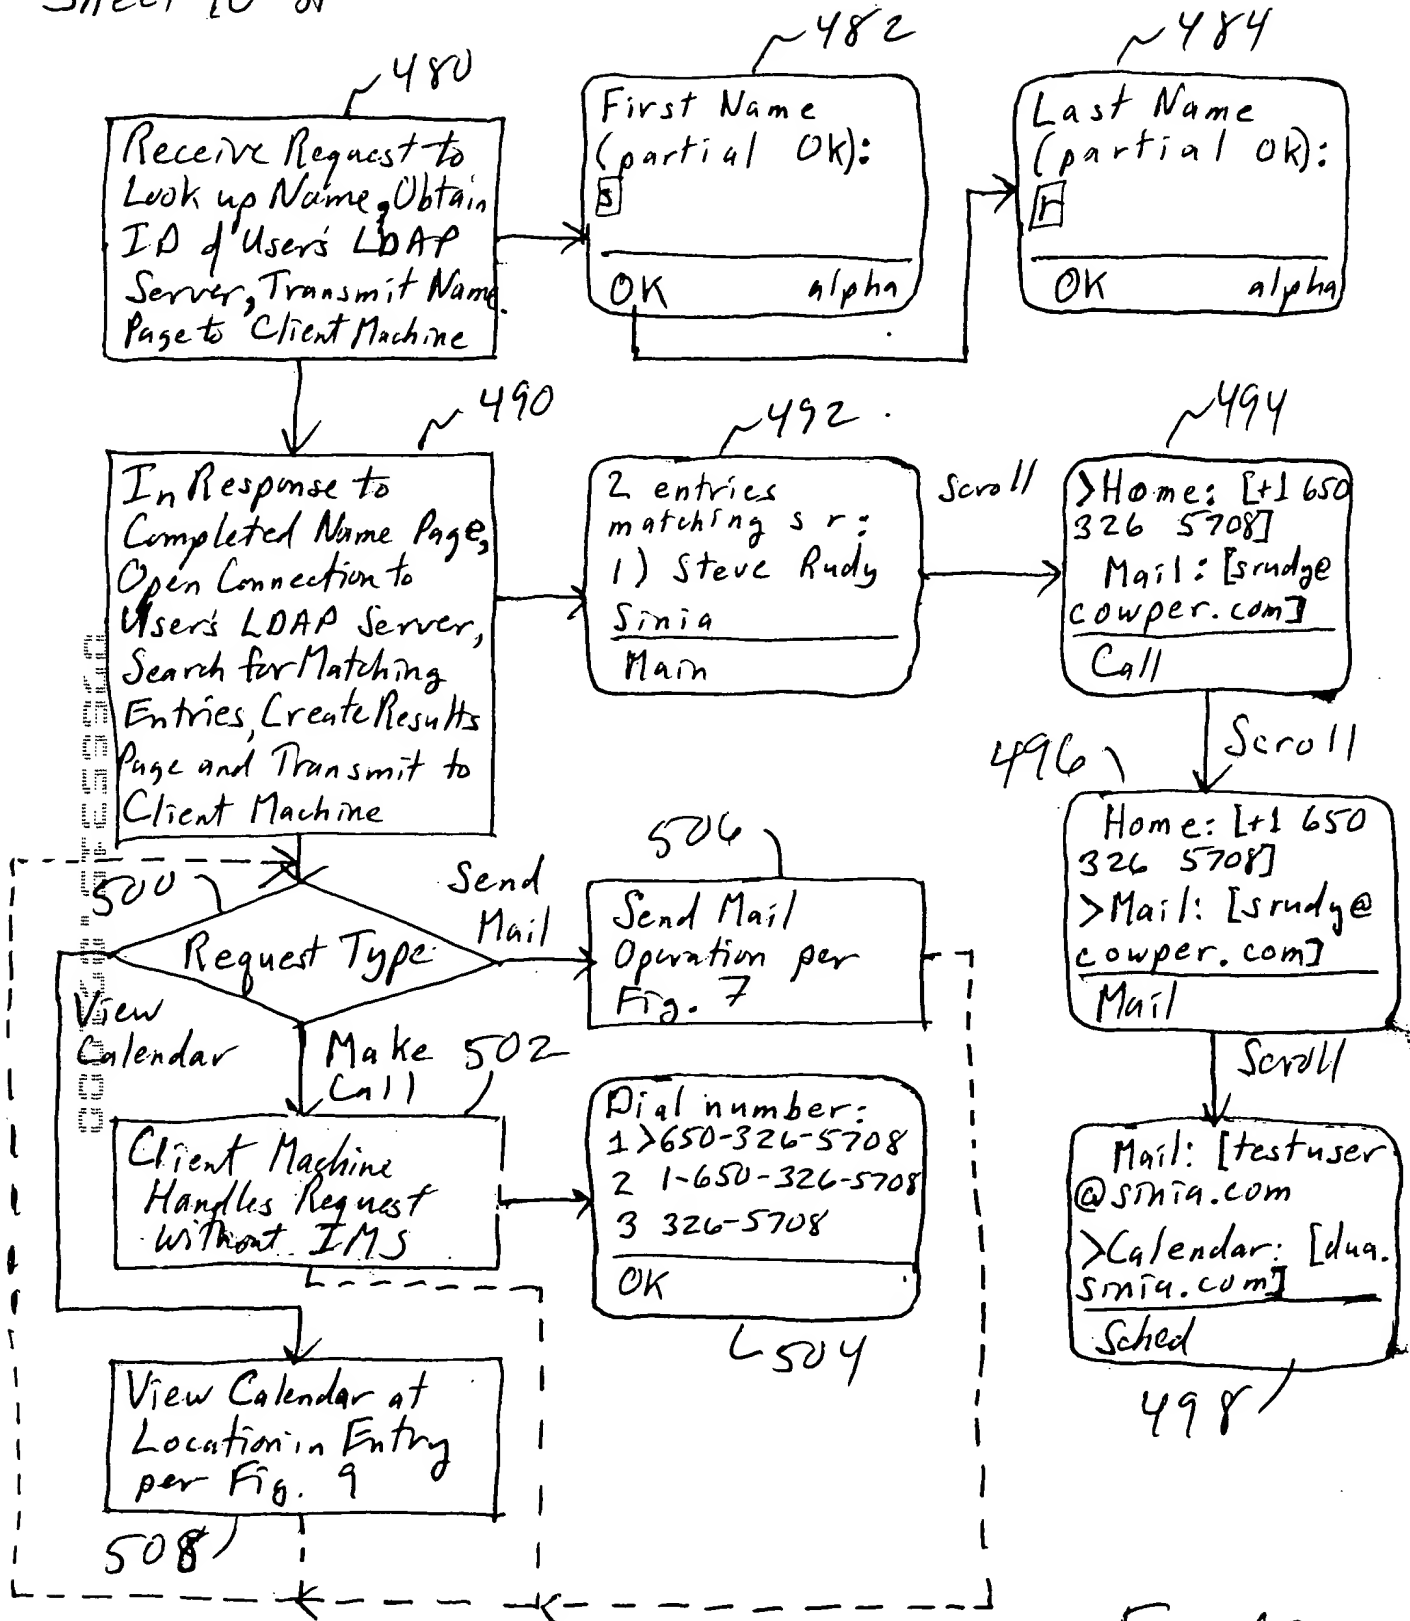 Sheet 10 of
480
Receive Request to
Look up Name, Obtain
ID of User's LDAP
Server, Transmit Name
Page to Client Machine
482
First Name
(partial OK):
s
OK alpha
484
Last Name
(partial OK):
r
OK alpha
490
In Response to
Completed Name Page,
Open Connection to
User's LDAP Server,
Search for Matching
Entries, Create Results
Page and Transmit to
Client Machine
492
2 entries
matching s r:
1) Steve Rudy
Sinia
Main
Scroll
494
>Home: [+1 650
326 5708]
Mail: [srudy@
cowper.com]
Call
Scroll
496
Home: [+1 650
326 5708]
>Mail: [srudy@
cowper.com]
Mail
Scroll
Mail: [testuser
@sinia.com
>Calendar: [dua.
sinia.com]
Sched
498
500
Request Type
Send
Mail
506
Send Mail
Operation per
Fig. 7
View
Calendar
Make
Call
502
Client Machine
Handles Request
without IMS
Dial number:
1 >650-326-5708
2 1-650-326-5708
3 326-5708
OK
504
View Calendar at
Location in Entry
per Fig. 9
508